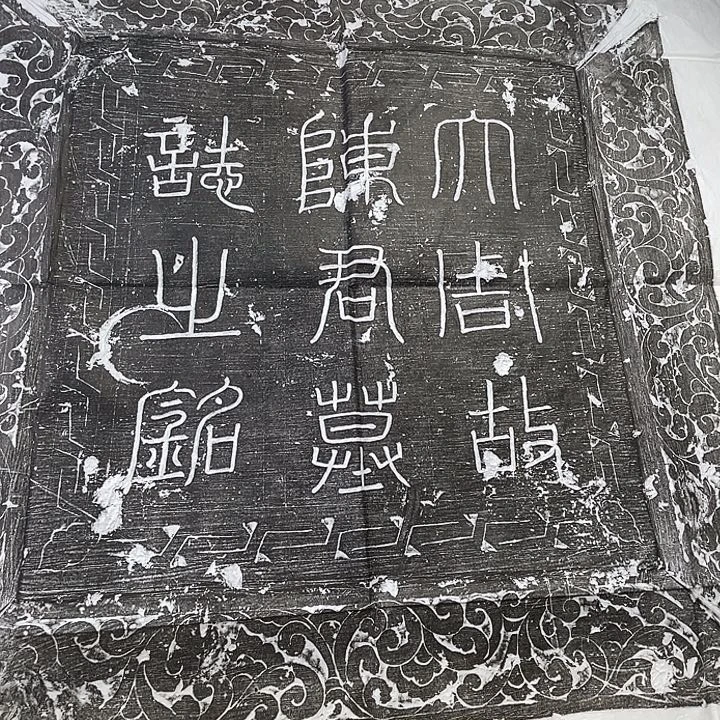 大周故
陳君墓
誌之銘